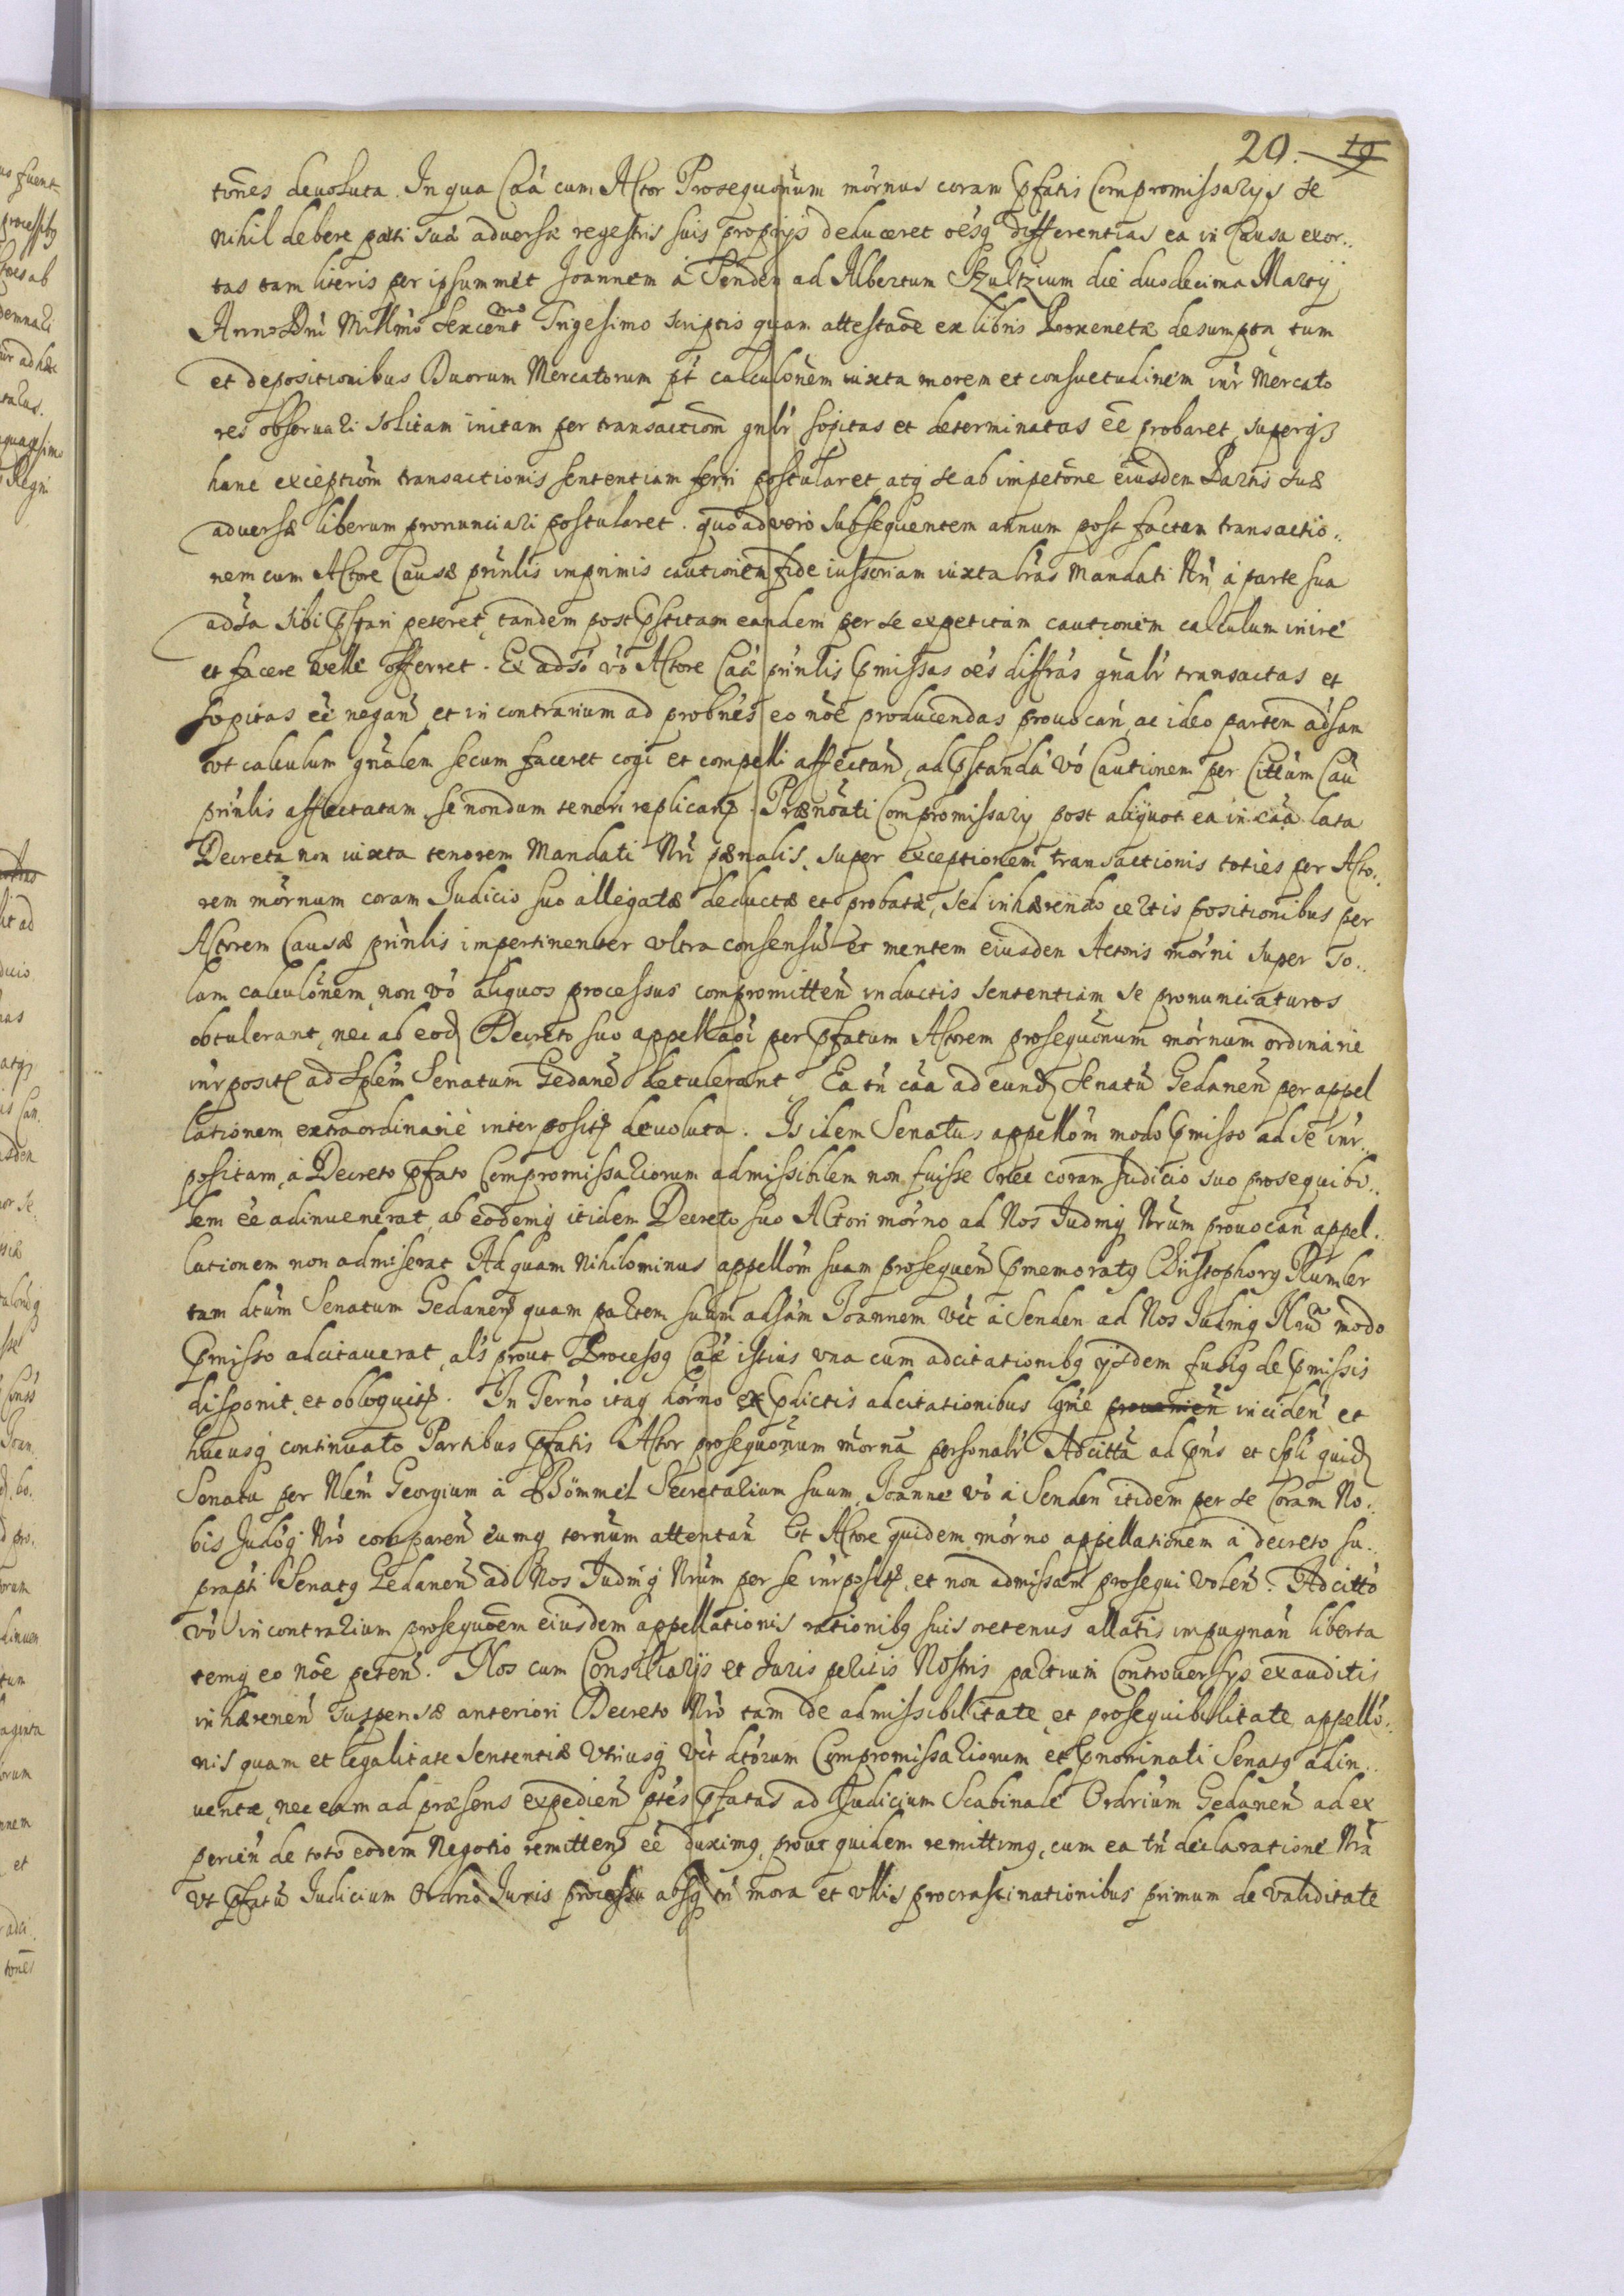 20. 19
tiões deuoluta. In qua Caã cum Actor Prosequoñum mõrnus coram Pfatis Compromissarijs se
nihil debere parti suã aduersæ regestris suis proprijs deduceret oẽsq differentias ea in Causa exor..
tas tam literis per ipsummet Joannem à Senden ad Albertum Szultzium die duodecima Martij
Anno Dni Millmo Sexcentmo Trigesimo scriptis quam attestaõe ex libris Proxenetæ desumpta, tum
et depositionibus Duorum Mercatorum pt calculoñem iuxta morem et consuetudinem inr Mercato
res obseruari solitam initam per transactiom gnlr sopitas et determinatas eẽ probaret, superq3
hanc exceptiom transactionis sententiam ferri postularet, atq se ab impetoñe eiusdem Partis suæ
aduersæ liberum pronunciari postularet. quo ad vero subsequentem annum post factam transactio..
nem cum Actore Causæ prinlis imprimis cautionem fide iussoriam iuxta lrãs Mandati Nri à parte sua
adsa sibi Pstari peteret, tandem post Pstitam eandem per se expetitam cautionem calculum inire
et facere velle offerret. Ex adso vo Actore Caæ prinlis Pmissas oẽs diffrãs gnalr transactas et
sopitas eẽ negan et in contrarium ad probnes eo noẽ producendas prouocan, ac ideo partem adsam
vt calculum gnalem secum faceret cogi et compelli affectan, ad Pstandã vo Cautionem per Cittum Cau
prinlis affectatam, se nondum teneri replican. Prænoãti Compromissarij post aliquot ea in caã lata
Decreta non iuxta tenorem Mandati Nri pænalis, super exceptionem transactionis toties per Acto..
rem mornum coram Judicio suo allegatæ deductæ et probatæ, sed inhærendo certis positionibus per
Actorem Causæ prinlis impertinenter vltra consensu et mentem eiusdem Actoris morni super so..
lam calculoñem, non vo aliquos processus compromitten inductis sententiam se pronunciaturos
obtulerant, nec ab eod Decreto suo appellaõi per Pfatum Actorem prosequonum mornum ordinarie
inrposit ad Splem Senatum Gedanen detulerant. Ea tn caã ad eund Senatu Gedanen per appel
lationem extraordinariè interposit deuoluta. Is idem Senatus appellom modo Pmisso ad se inr..
positam, à Decreto Pfato Compromissariorum admissibilem non fuisse nec coram Judicio suo prosequibi..
lem eẽ adinuenerat, ab eodemq itidem Decreto suo Actori morno ad Nos Judmq Nrum prouocan appel..
lationem non admiserat Ad quam nihilominus appellom suam prosequen Pmemoratq Christophorq Rumler
tam dtum Senatum Gedanen quam partem suam adsam Joannem vtt à Senden ad Nos Judmq Nrum modo
Pmisso adcitauerat, als prout Processq Caæ istius vna cum adcitationibq ijsdem fusiq de Pmissis
disponit et obloquit. In Terno itaq horno ex Pdictis adcitationibus lgme prouenien inciden et
hucusq continuato Partibus Pfatis Actor prosequonum morna personalr Adcittã ad Pns et Spli quid
Senatu per Nlem Georgium à Bömmel Secretarium suum, Joanne vo à Senden itidem per se Coram No..
bis Judoq Nro comparen eumq ternum attentan Et Actore quidem morno appellationem à decreto su..
prapti Senatq Gedanen ad Nos Judmq Nrum per se inrposit, et non admissam prosequi volen. Adcitto
vo in contrarium prosequoem eiusdem appellationis rationibq suis oretenus allatis impugnan liberta
temq eo noẽ peten. Nos cum Consiliarijs et Juris peritis Nostris partium Controuersijs exauditis
inhæren suspensæ anteriori Decreto Nro tam de admissibilitate et prosequibilitate appello..
nis quam et legalitate Sententiæ vtriusq vtt dtorum Compromissariorum et Pnominati Senatq adin..
uentæ, nec eam ad præsens expedien ptes Pfatas ad Judicium Scabinale Ordrium Gedanen ad ex
perien de toto eodem Negotio remitten eẽ duximq, prout quidem remittimq, cum ea tn declaratione Nra
vt Pfatu Judicium Ordrio Juris processu absq tn mora et vllis procrastinationibus primum de validitate